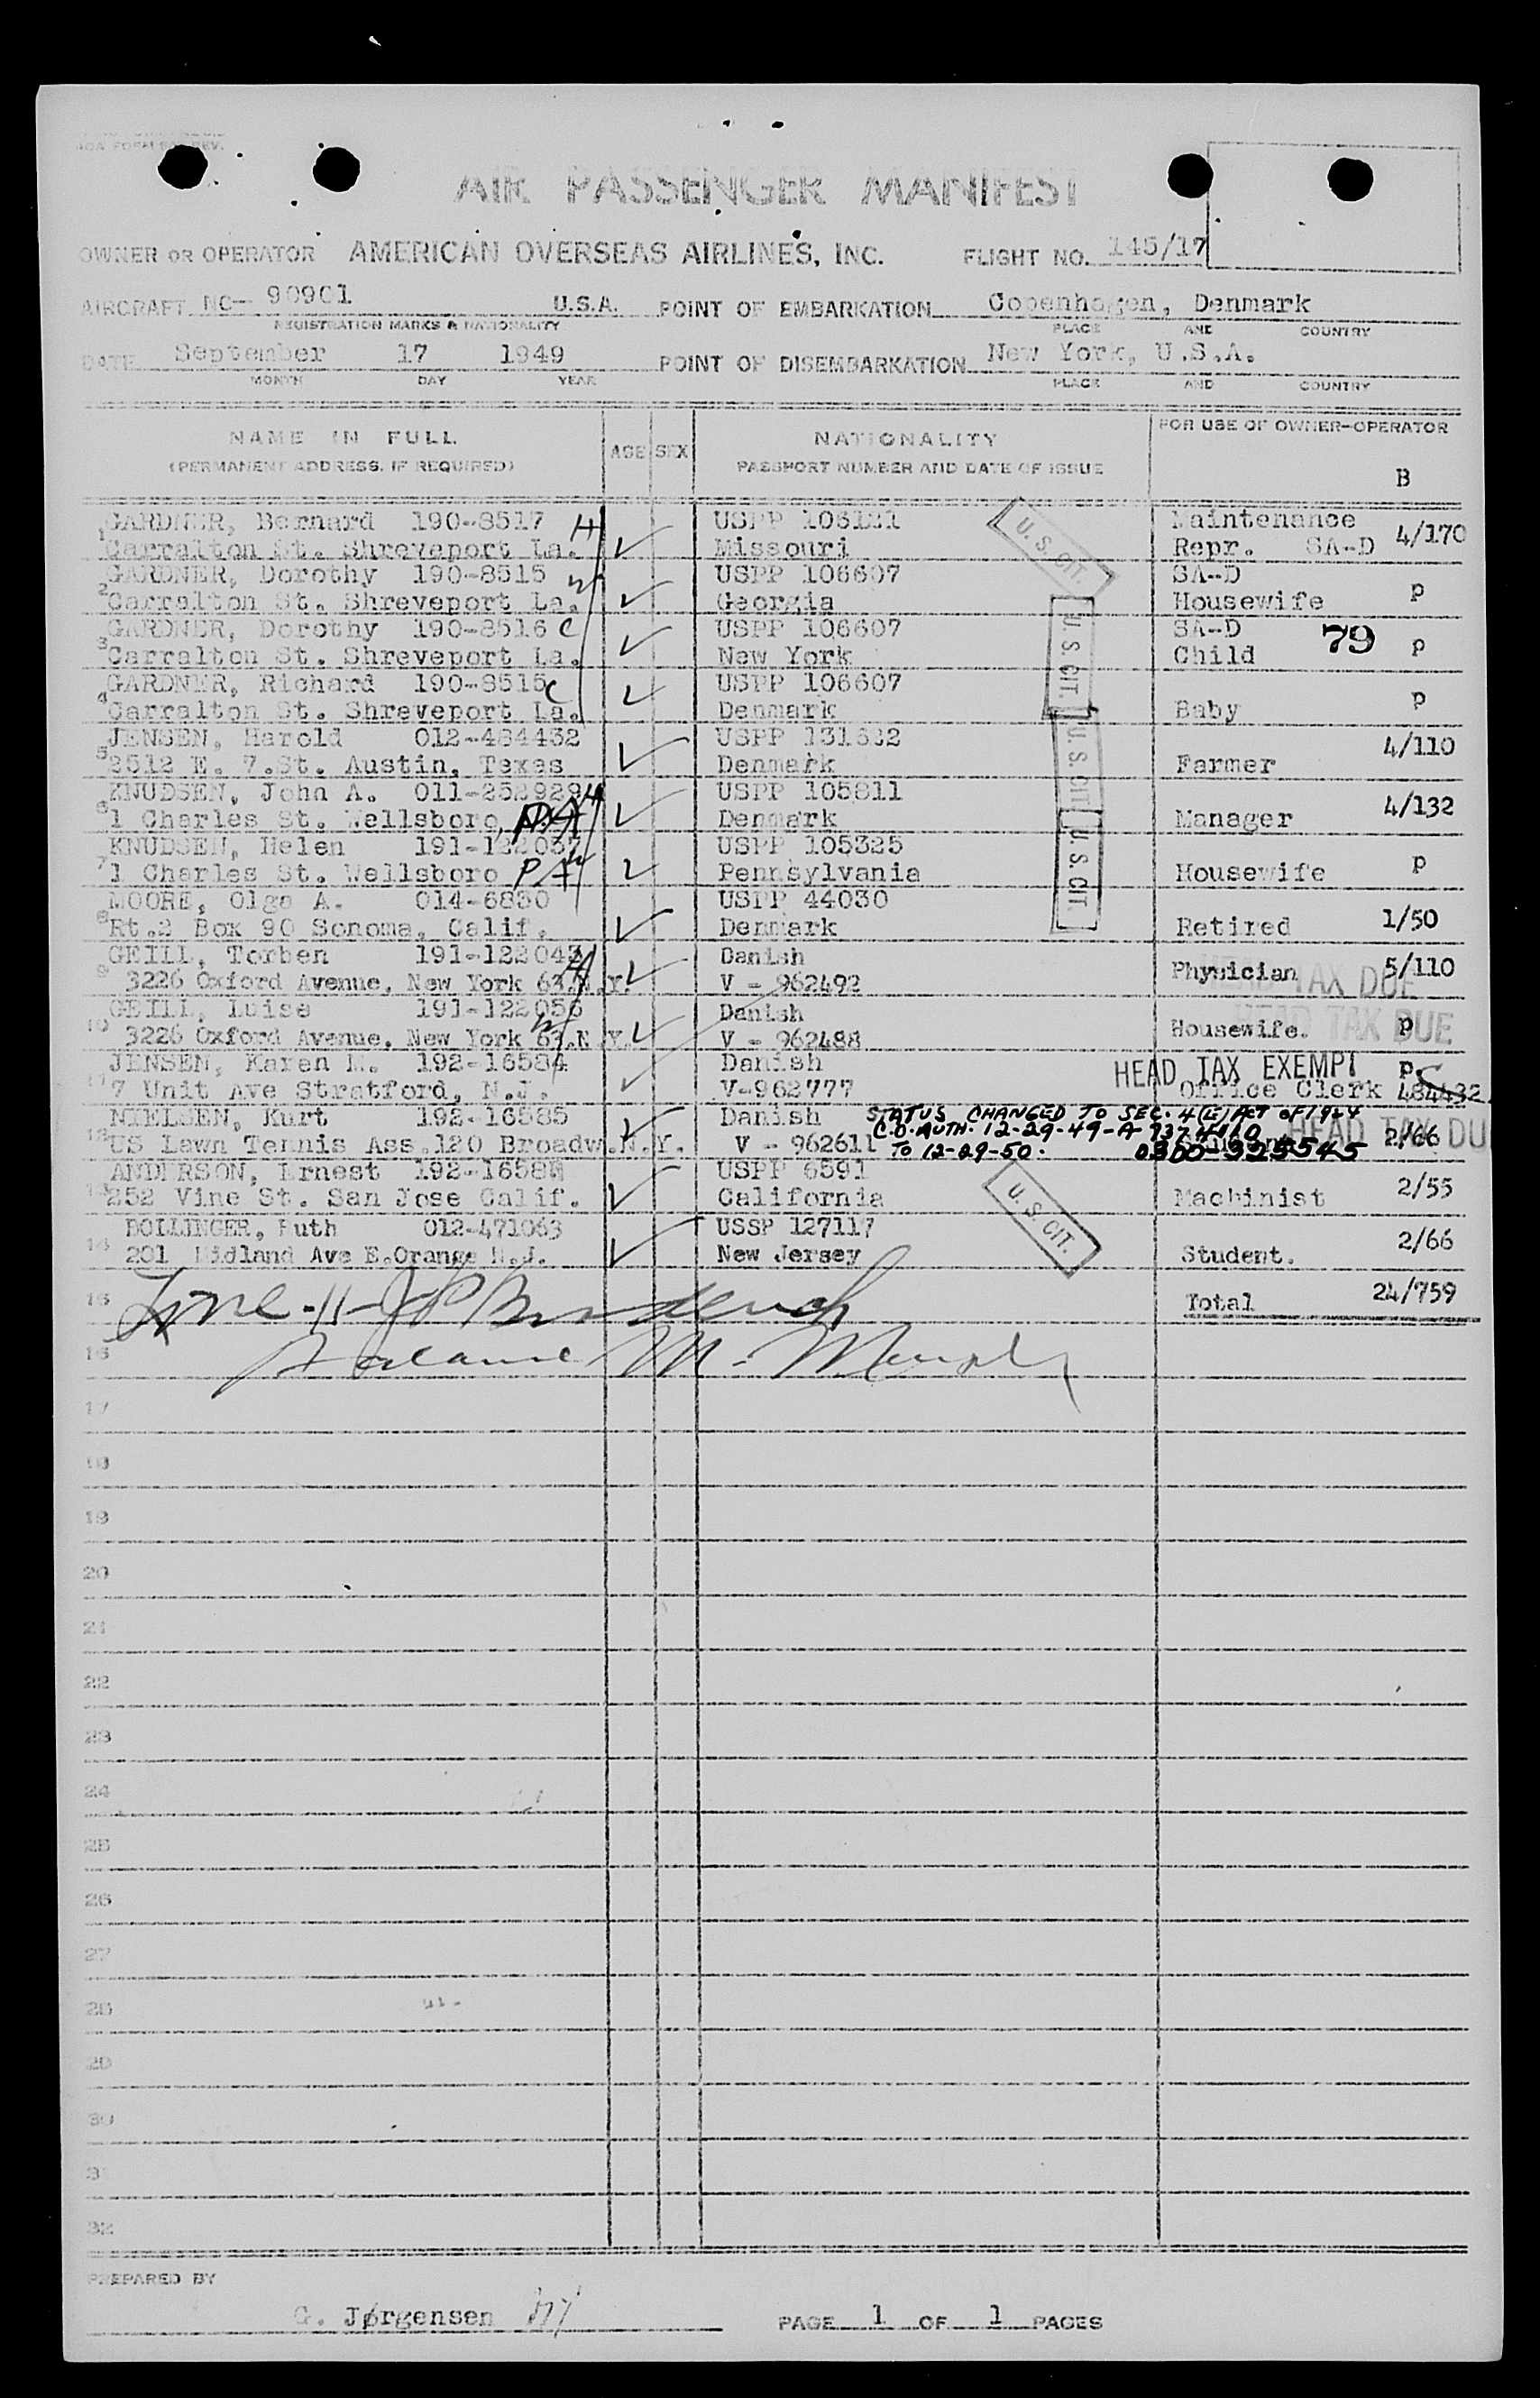 AIR PASSENGER MANIFEST
OWNER OR OPERATOR AMERICAN OVERSEAS AIRLINES, INC. FLIGHT NO. 145/17
AIRCRAFT NC- 90901 U.S.A. POINT OF EMBARKATION Copenhagen, Denmark
REGISTRATION MARKS & NATIONALITY PLACE AND COUNTRY
DATE September 17 1949 POINT OF DISEMBARKATION New York, U.S.A.
MONTH DAY YEAR PLACE AND COUNTRY
NAME IN FULL AGE SEX NATIONALITY FOR USE OF OWNER-OPERATOR
(PERMANENT ADDRESS, IF REQUIRED) PASSPORT NUMBER AND DATE OF ISSUE B
1 GARDNER, Bernard 190-8517 H USPP 106121 Maintenance 4/170
Carralton St. Shreveport La. Missouri U. S. CIT. Repr. SA-D
2 GARDNER, Dorothy 190-8515 W USPP 106607 SA-D p
Carralton St. Shreveport La. Georgia Housewife
3 GARDNER, Dorothy 190-8516 C USPP 106607 U. S. CIT. SA-D 79 p
Carralton St. Shreveport La. New York Child
4 GARDNER, Richard 190-8515 C USPP 106607 p
Carralton St. Shreveport La. Denmark Baby
5 JENSEN, Harold 012-484432 USPP 131622 U. S. CIT. 4/110
2512 E. 7.St. Austin, Texas Denmark Farmer
6 KNUDSEN, John A. 011-252929 H USPP 105811 4/132
1 Charles St. Wellsboro, PA Denmark Manager
7 KNUDSEN, Helen 191-122037 USPP 105325 U. S. CIT. p
1 Charles St. Wellsboro PA W Pennsylvania Housewife
8 MOORE, Olga A. 014-6830 USPP 44030 1/50
Rt.2 Box 90 Sonoma, Calif. Denmark Retired
9 GEILL, Torben 191-122043 H Danish Physician 5/110
3226 Oxford Avenue, New York 63.N.Y. V - 962492 HEAD TAX DUE
10 GEILL, Luise 191-122056 W Danish HEAD TAX DUE
3226 Oxford Avenue, New York 63.N.Y. V - 962488 Housewife. p
11 JENSEN, Karen M. 192-16584 Danish HEAD TAX EXEMPT p
7 Unit Ave Stratford, N.J. V-962777 Office Clerk 484432
12 NIELSEN, Kurt 192-16585 Danish STATUS CHANGED TO SEC. 4(E) ACT OF 1924
US Lawn Tennis Ass.120 Broadw.N.Y. V - 962611 C.O. AUTH. 12-29-49-A HEAD TAX DU 2/66
TO 12-29-50. 0300-325545
13 ANDERSON, Ernest 192-1658 USPP 6591 2/55
252 Vine St. San Jose Calif. California U. S. CIT. Machinist
14 BOLLINGER, Ruth 012-471063 USSP 127117 2/66
201 Midland Ave E.Orange N.J. New Jersey Student.
15 Line -11- Total 24/759
16 M.
17
18
19
20
21
22
23
24
25
26
27
28
29
30
31
32
PREPARED BY
G. Jørgensen PAGE 1 OF 1 PAGES